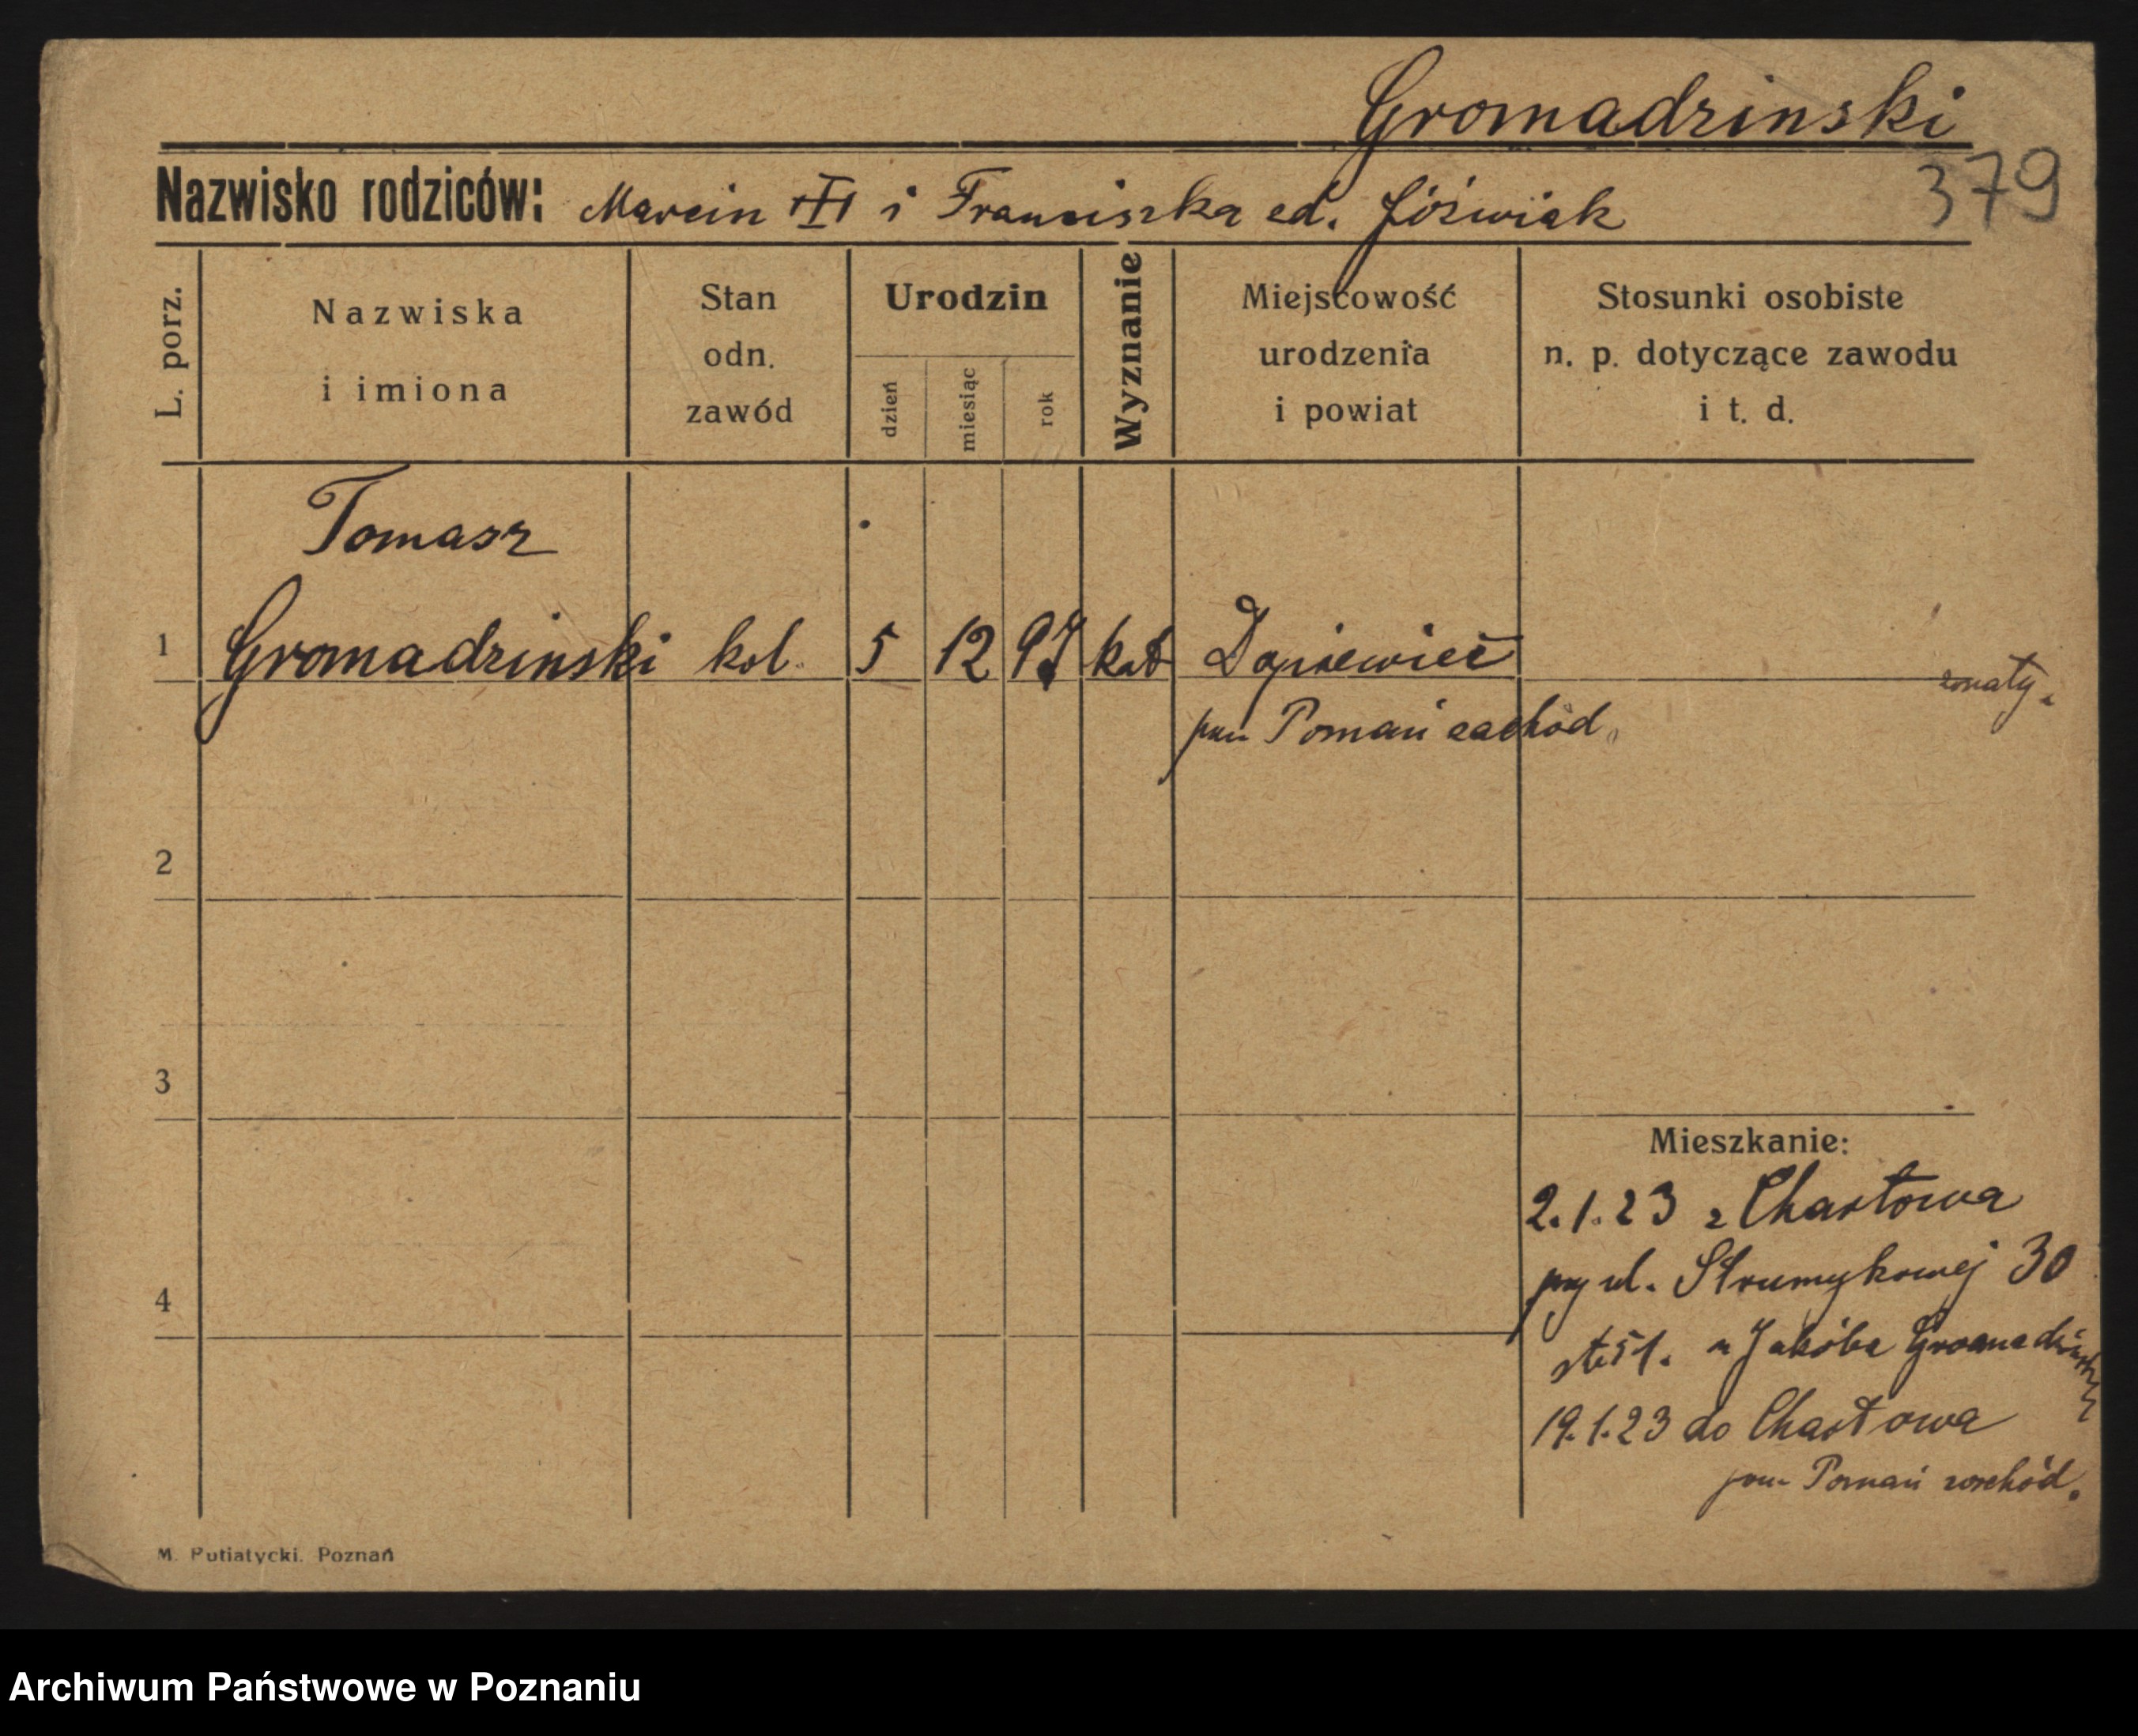 Gromadzinski
379
Nazwisko rodziców: Marcin i Franciszka Jóźwiak
L. porz.
Nazwiska
i imiona
Stan
odn.
zawód
Urodzin
dzień
miesiąc
rok
Wyznanie
Miejscowość
urodzenia
i powiat
Stosunki osobiste
n. p. dotyczące zawodu
i t. d.
Tomasz
1 Gromadzinski kol. 5 12 97 kat Dopiewiec
żonaty.
pow Poznań zachód
2
3
Mieszkanie:
2.1.23 z Chartowa
przy ul. Strumykowej 30
4
u Jakóba Gromadzinski
19.1.23 do Chartowa
pow Poznań wschód.
M. Putiatycki. Poznań
Archiwum Państwowe w Poznaniu